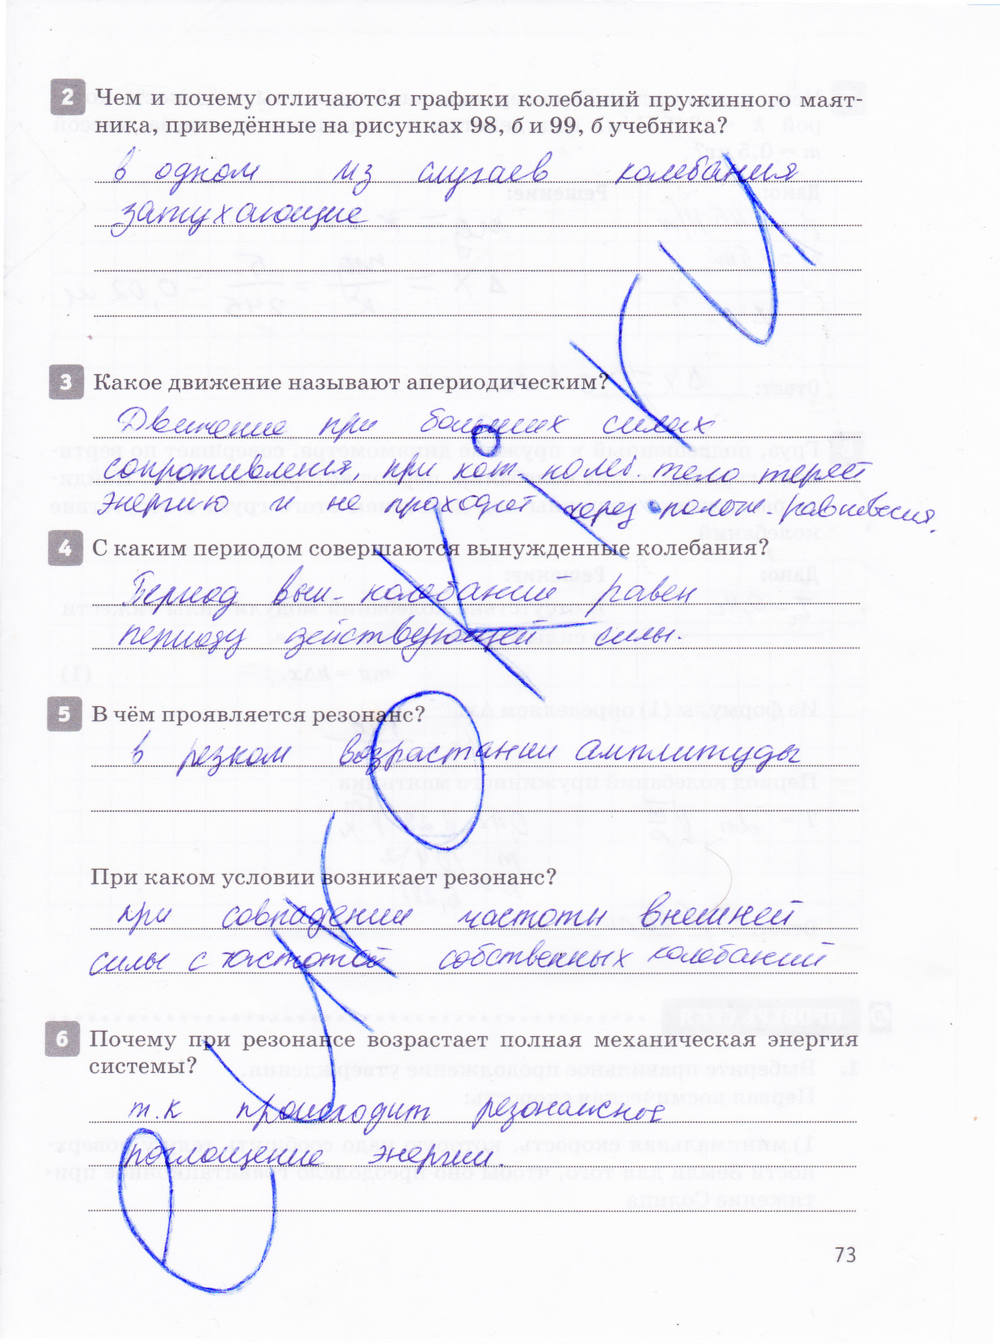 2 Чем и почему отличаются графики колебаний пружинного маят-
ника, приведённые на рисунках 98, б и 99, б учебника?
в одном из случаев колебания
затухающие
3 Какое движение называют апериодическим?
Движение при больших силах
сопротивления, при кот. колеб. тело теряет
энергию и не проходит через полож равновесия.
4 С каким периодом совершаются вынужденные колебания?
Период вын. колебаний равен
периоду действующей силы.
5 В чём проявляется резонанс?
в резком возрастании амплитуды
При каком условии возникает резонанс?
при совпадении частоты внешней
силы с частотой собственных колебаний
6 Почему при резонансе возрастает полная механическая энергия
системы?
т.к происходит резонансное
поглощение энергии.
73